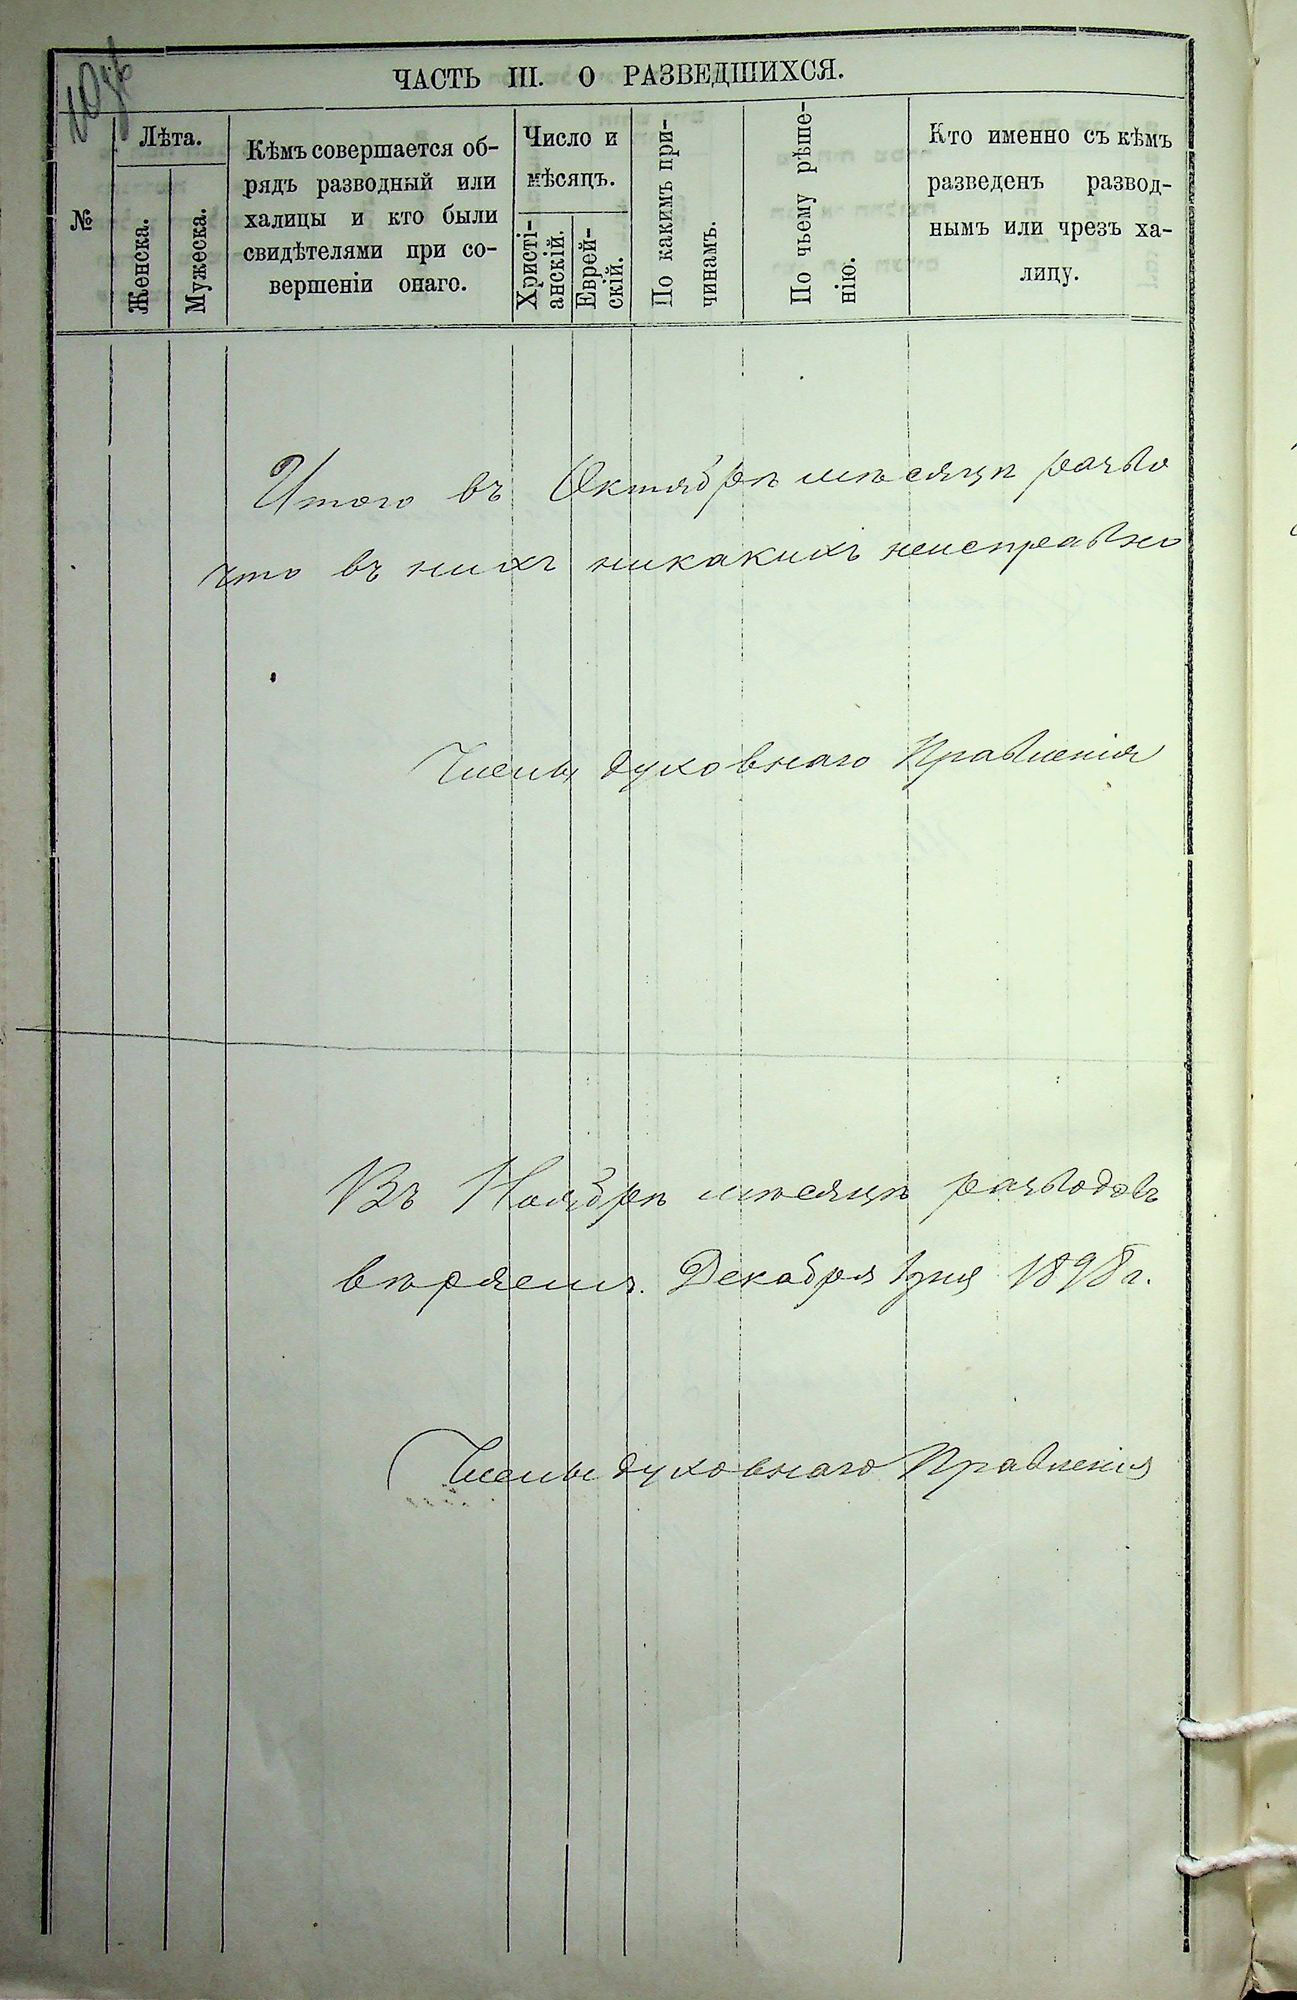 ЧАСТЬ III. О РАЗВЕДШИХСЯ.
№
Лѣта.
Женска.
Мужеска.
Кѣмъ совершается об-
рядъ разводный или
халицы и кто были
свидѣтелями при со-
вершеніи онаго.
Число и
мѣсяцъ.
Христі-
анскій.
Еврей-
скій.
По какимъ при-
чинамъ.
По чьему рѣше-
нію.
Кто именно съ кѣмъ
разведенъ развод-
нымъ или чрезъ ха-
лицу.
Итого въ Октябрѣ мѣсяцѣ разво
что въ нихъ никакихъ неисправно
Члены духовнаго Правленія
Въ Ноябрѣ мѣсяцѣ разводовъ
вѣряемъ. Декабря 1 дня 1898 г.
Члены духовнаго Правленія